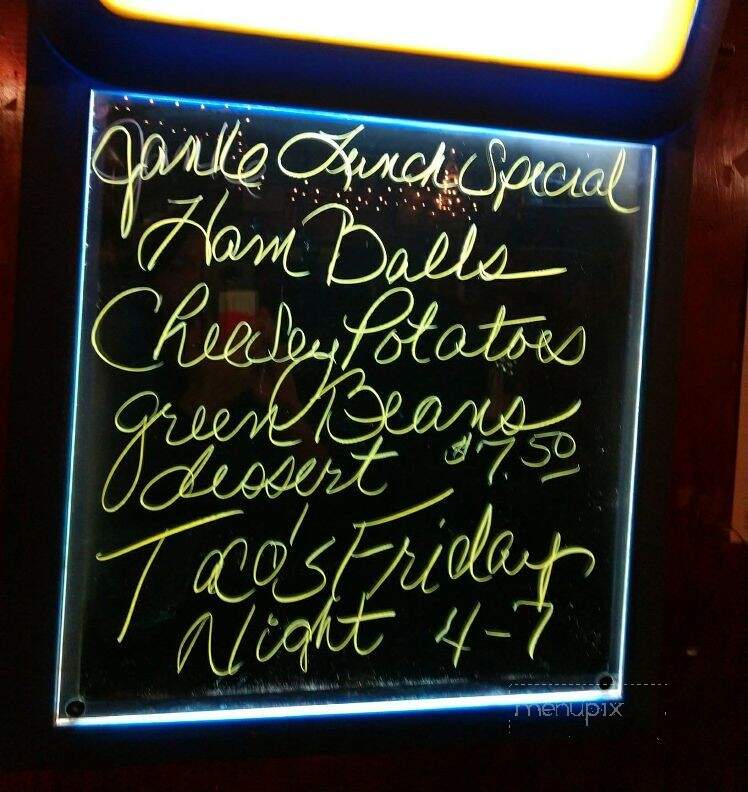 Janke Lunch Special
Ham Balls
Cheesey Potatoes
green Beans
dessert $7.50
Taco's Friday
Night 4-7
menupix